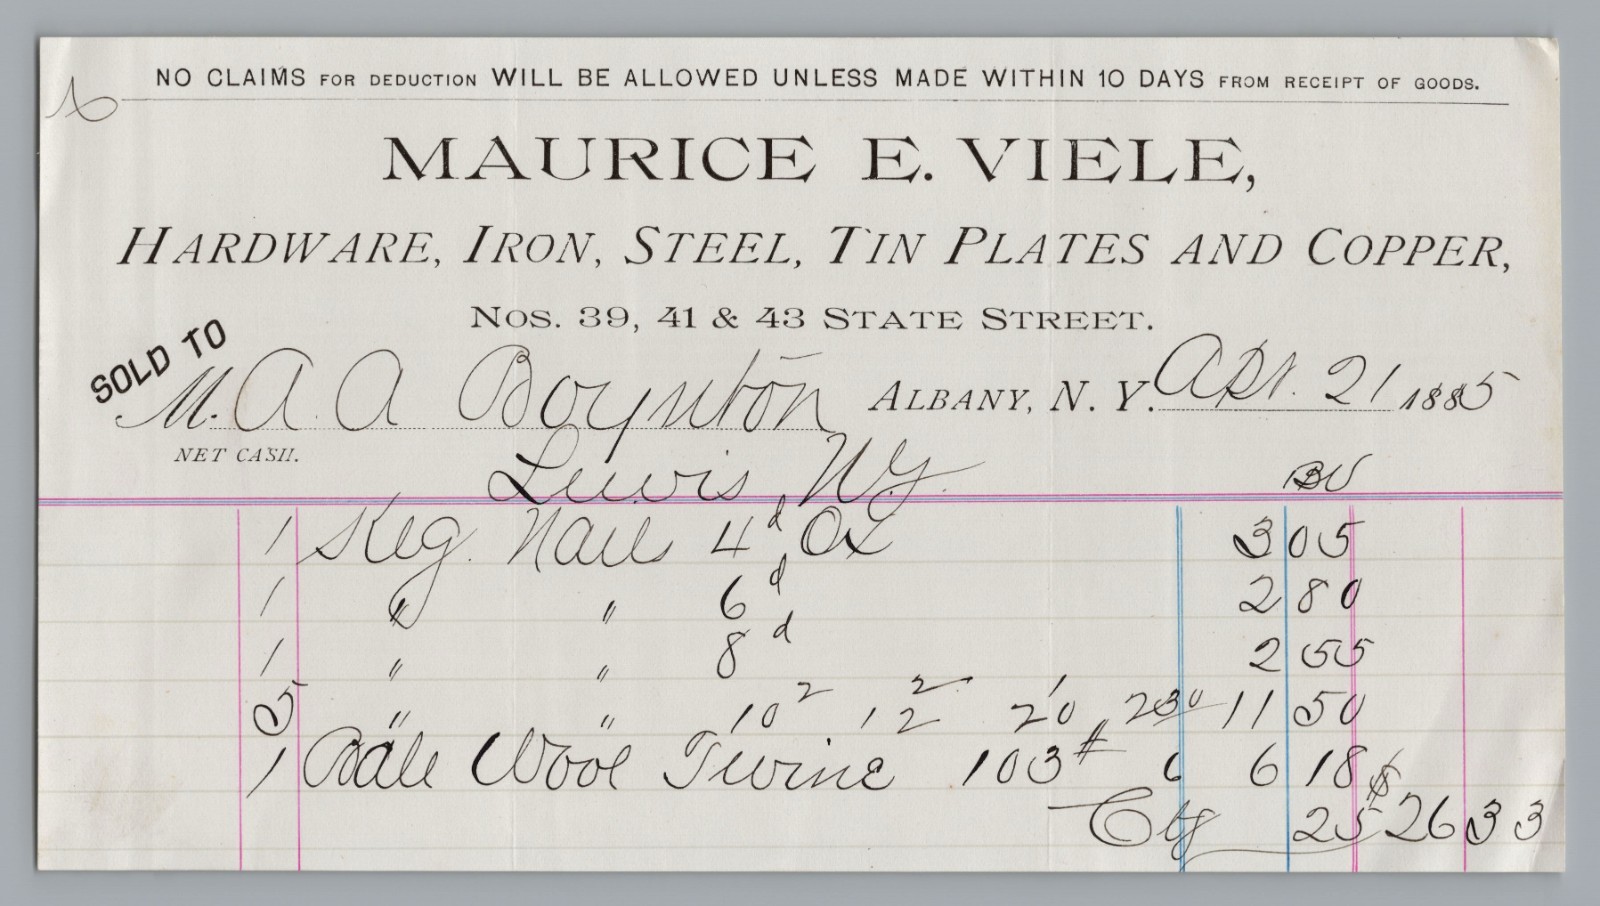 NO CLAIMS FOR DEDUCTION WILL BE ALLOWED UNLESS MADE WITHIN 10 DAYS FROM RECEIPT OF GOODS.
MAURICE E. VIELE,
HARDWARE, IRON, STEEL, TIN PLATES AND COPPER,
NOS. 39, 41 & 43 STATE STREET.
SOLD TO
M. A. A Boynton ALBANY, N. Y. Apr. 21 1885
NET CASH.
Lewis, N.Y.
1 Keg Nails 4d Ox 3 05
1 " " 6d 2 80
1 " " 8d 2 55
5 " " 10 2 12 2 20 1 2 30 11 50
1 Bale Wool Twine 103# 6 6 18
Ctg 25 $26 33